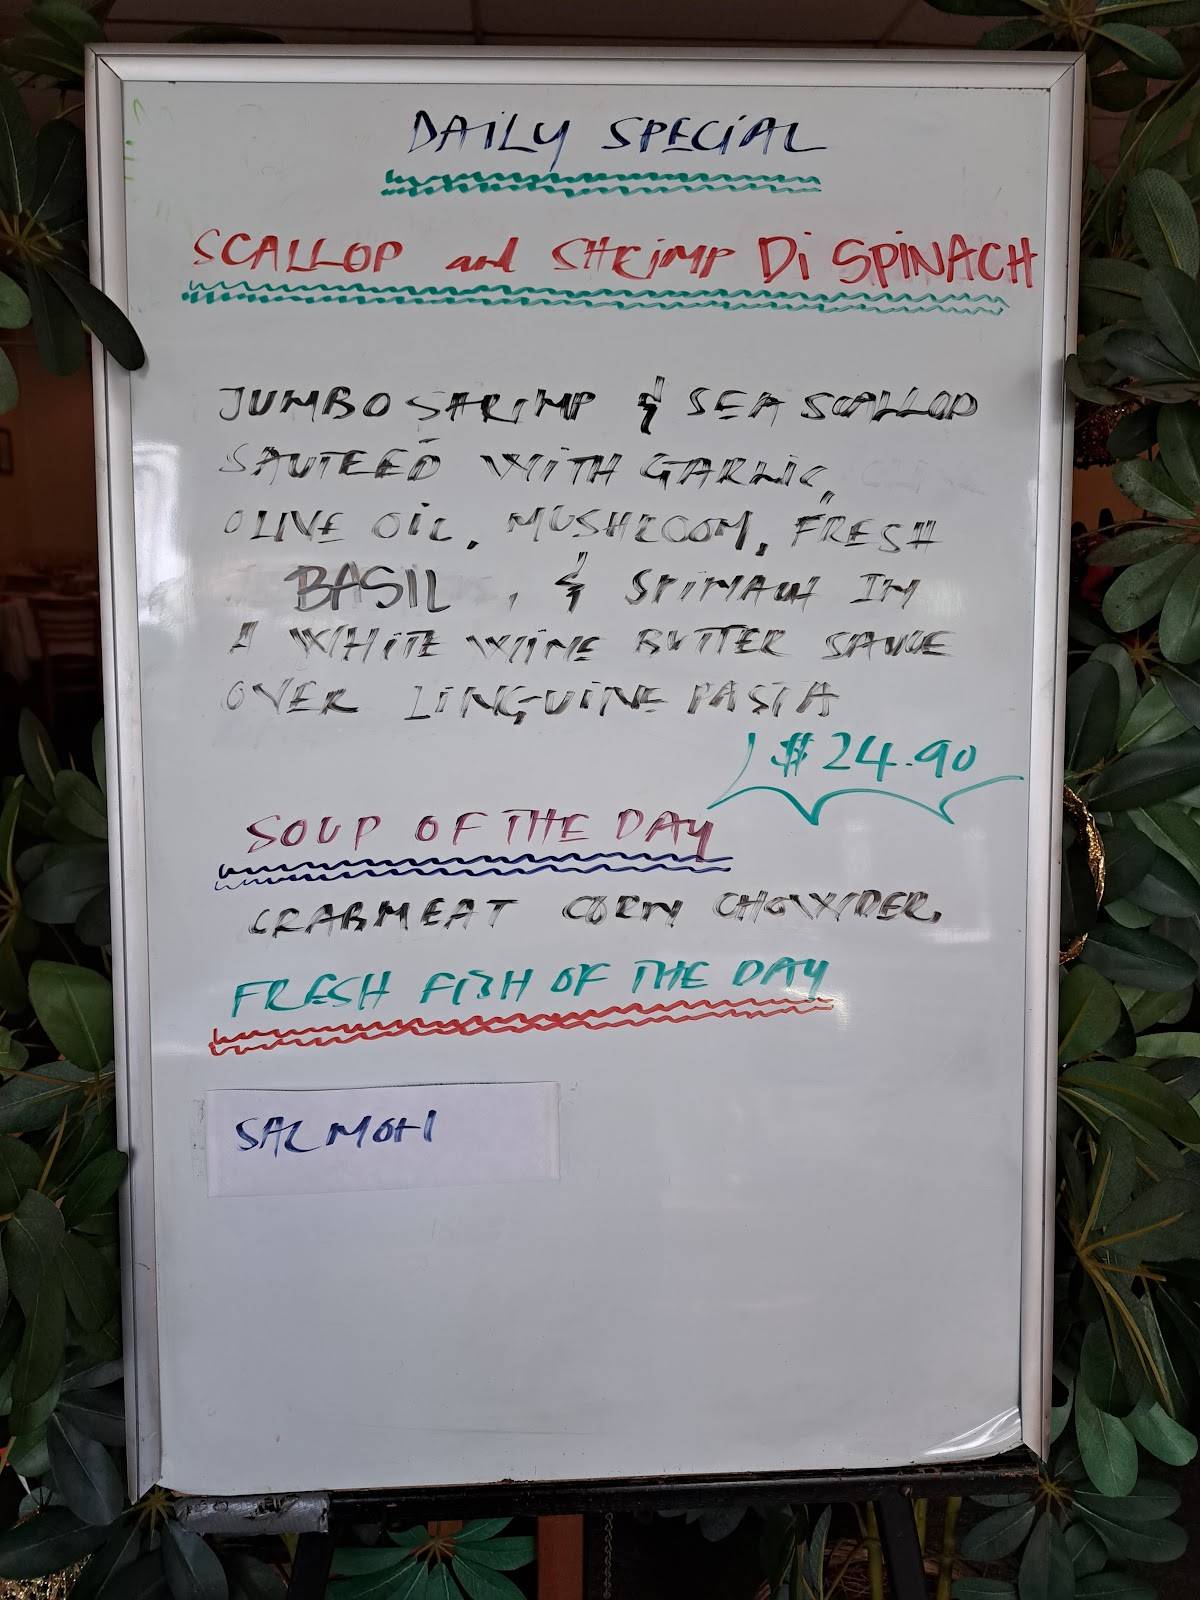 DAILY SPECIAL
SCALLOP and SHRIMP Di SPINACH
JUMBO SHRIMP & SEA SCALLOP
SAUTEED WITH GARLIC,
OLIVE OIL, MUSHROOM, FRESH
BASIL , & SPINACH IN
A WHITE WINE BUTTER SAUCE
OVER LINGUINE PASTA
$24.90
SOUP OF THE DAY
CRABMEAT CORN CHOWDER.
FRESH FISH OF THE DAY
SALMON